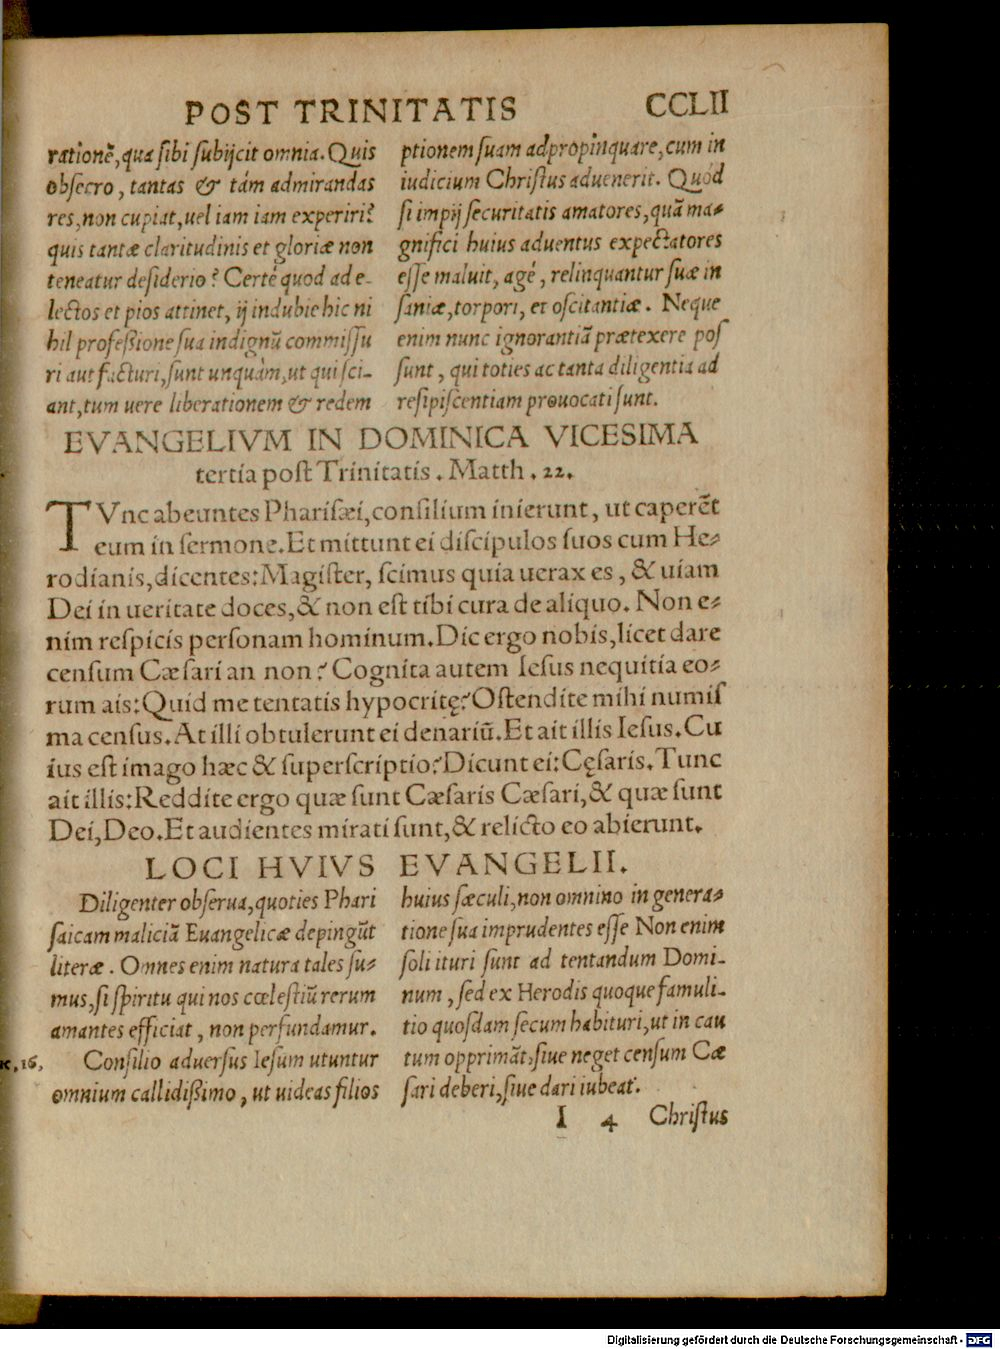 POST TRINITATIS CCLII
rationē, qua sibi subijcit omnia. Quis
obsecro, tantas & tám admirandas
res, non cupiat, uel iam iam experiri?
quis tantæ claritudinis et gloriæ non
teneatur desiderio? Certé quod ad e-
lectos et pios attinet, ij indubie hic ni
hil professione sua indignū commissu
ri aut facturi, sunt unquàm, ut qui sci-
ant, tum uere liberationem & redem
ptionem suam adpropinquare, cum in
iudicium Christus aduenerit. Quód
si impij securitatis amatores, quā ma-
gnifici huius aduentus expectatores
esse maluit, agé, relinquantur suæ in
saniæ, torpori, et oscitantiæ. Neque
enim nunc ignorantiā prætexere pos
sunt, qui toties ac tanta diligentia ad
resipiscentiam prouocati sunt.
EVANGELIVM IN DOMINICA VICESIMA
tertia post Trinitatis. Matth. 22.
TVnc abeuntes Pharisæi, consilium inierunt, ut caperēt
eum in sermone. Et mittunt ei discipulos suos cum He-
rodianis, dicentes: Magister, scimus quia uerax es, & uiam
Dei in ueritate doces, & non est tibi cura de aliquo. Non e-
nim respicis personam hominum. Dic ergo nobis, licet dare
censum Cæsari an non? Cognita autem Iesus nequitia eo-
rum ais: Quid me tentatis hypocritę? Ostendite mihi numis
ma census. At illi obtulerunt ei denariū. Et ait illis Iesus. Cu
ius est imago hæc & superscriptio? Dicunt ei: Cęsaris. Tunc
ait illis: Reddite ergo quæ sunt Cæsaris Cæsari, & quæ sunt
Dei, Deo. Et audientes mirati sunt, & relicto eo abierunt.
LOCI HVIVS EVANGELII.
Diligenter obserua, quoties Phari
saicam maliciā Euangelicæ depingūt
literæ. Omnes enim natura tales su-
mus, si spiritu qui nos cœlestiū rerum
amantes efficiat, non perfundamur.
Consilio aduersus Iesum utuntur
omnium callidissimo, ut uideas filios
huius sæculi, non omnino in genera-
tione sua imprudentes esse Non enim
soli ituri sunt ad tentandum Domi-
num, sed ex Herodis quoque famuli-
tio quosdam secum habituri, ut in cau
tum opprimāt, siue neget censum Cæ
sari deberi, siue dari iubeat.
16,
I 4 Christus
Digitalisierung gefördert durch die Deutsche Forschungsgemeinschaft - DFG